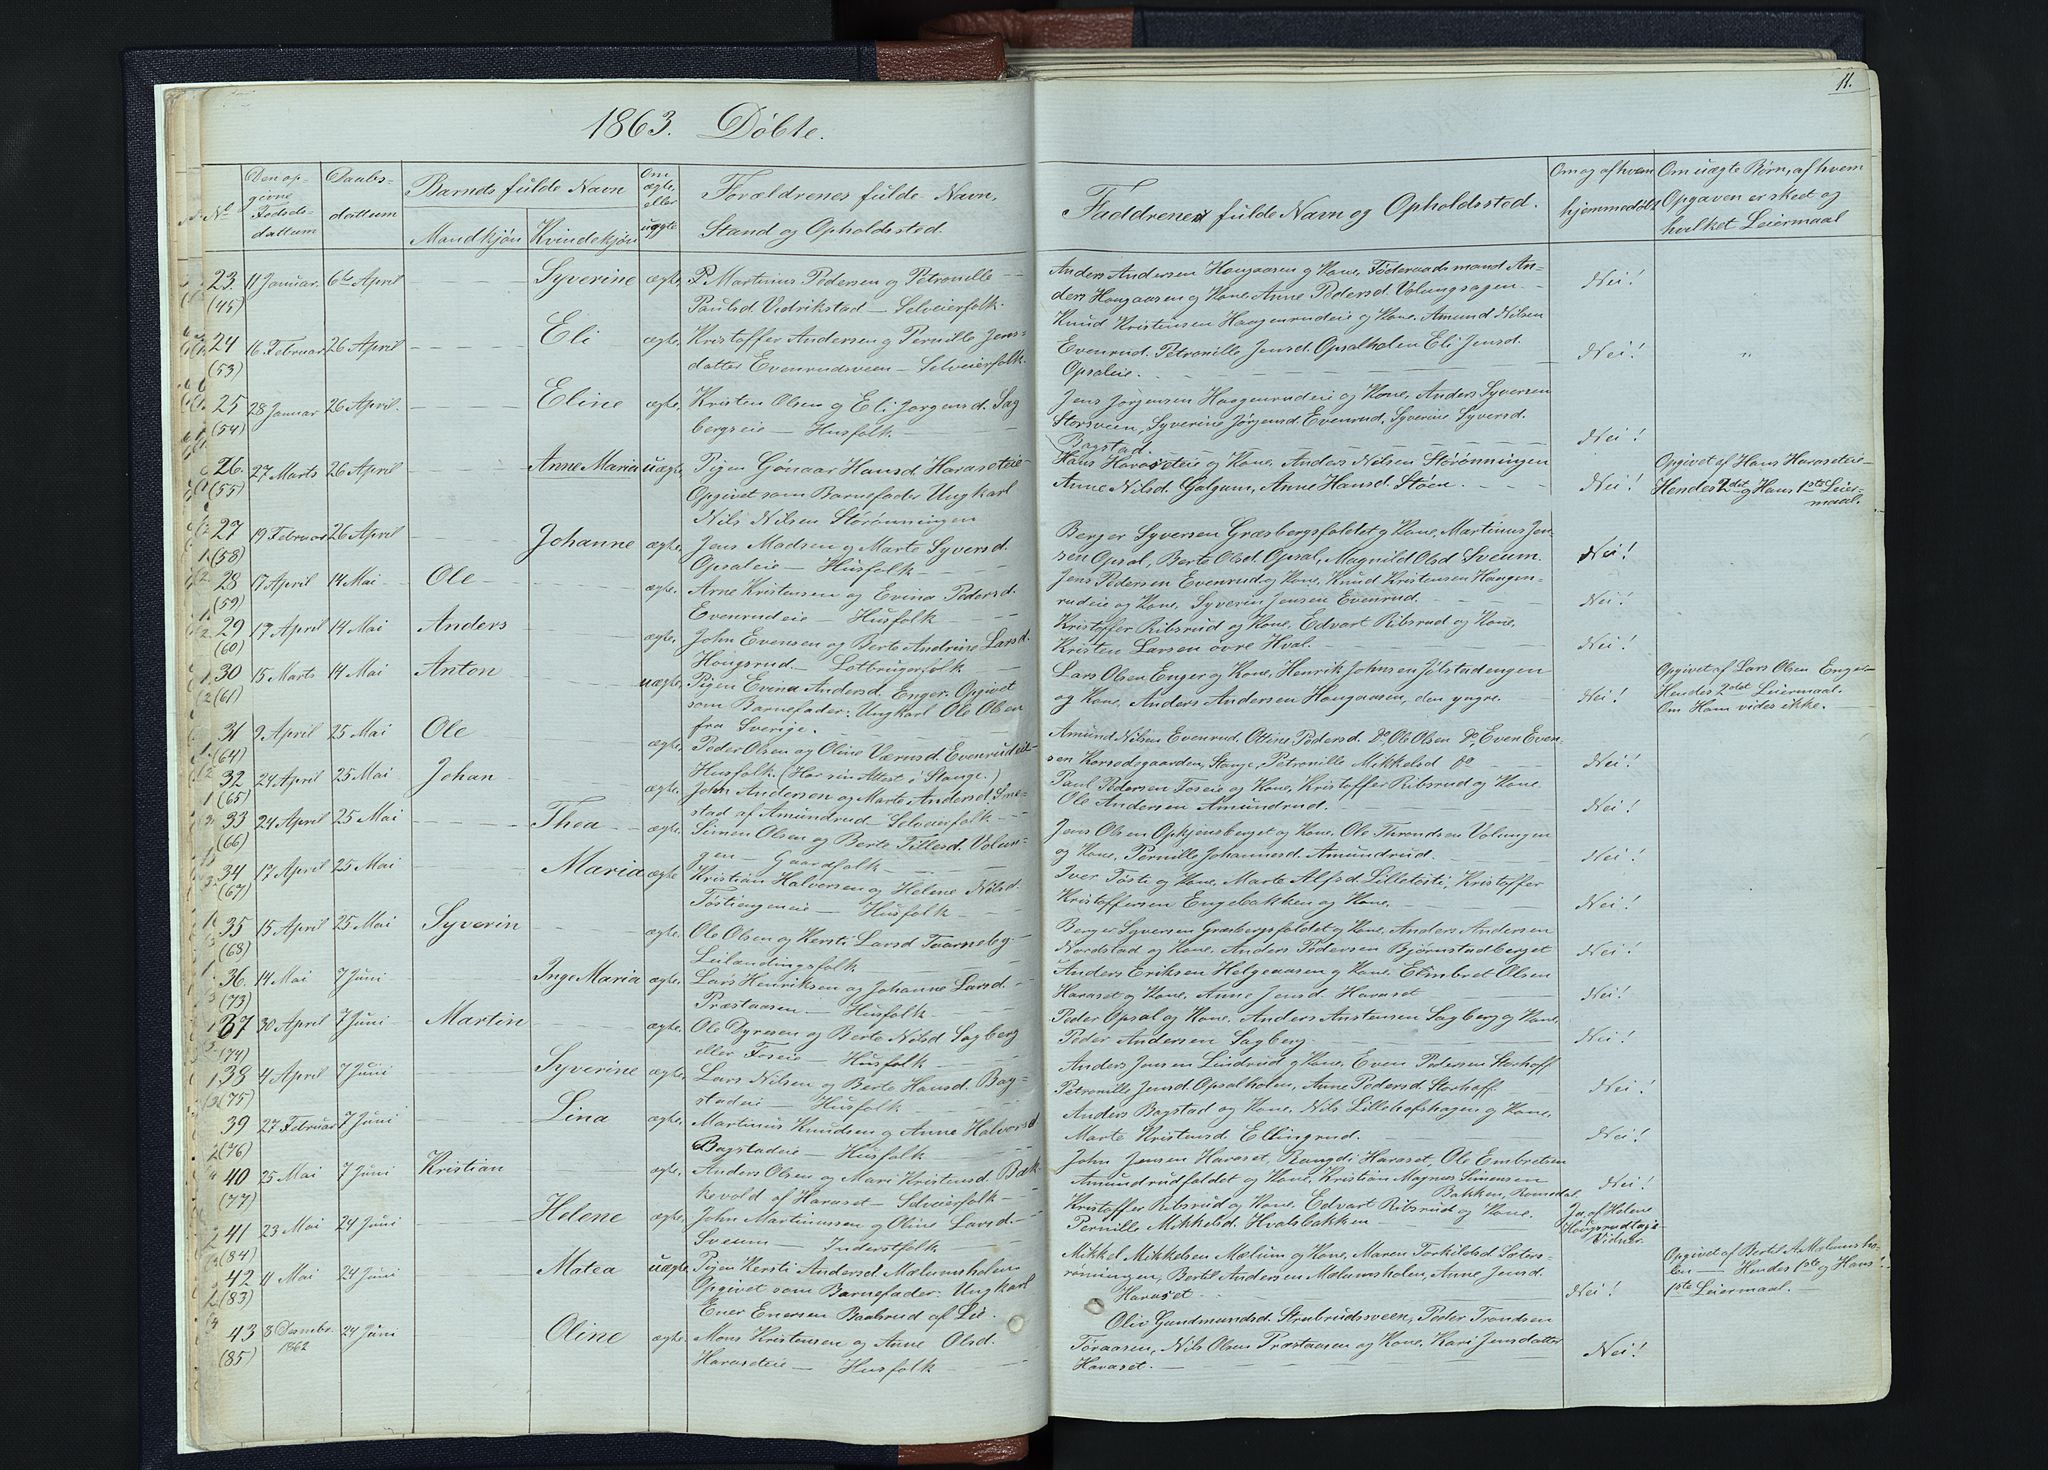 11.
1863. Døbte.
No
Den opgivne Fødselsdattum
Daabsdattum
Barnets fulde Navn
Mandkjøn
Kvindekjøn
Om ægte eller uægte
Forældrenes fulde Navn, Stand og Opholdssted.
Faddrenes fulde Navn og Opholdssted.
Om og af hvem hjemmedøbt
Om uægte Børn, af hvem Opgaven er skeet og hvilket Leiermaal
23. (45) 11 Januar. 6te April Syverine ægte. P. Martinus Pedersen og Petronille
Paulsd. Vedrikstad — Selveierfolk.
Anders Andersen Haugaasen og Kone, Føderaadsmand An-
ders Haugaasen og Kone, Anne Pedersd. Volungsagen
Nei!
24 (53) 16 Februar 26 April Eli ægte. Kristoffer Andersen og Pernille Jens-
datter Evenrudsveen — Selveierfolk.
Knud Kristensen Haagenrudeie og Kone, Amund Nilsen
Evenrud, Petronille Jensd. Opsalholen Eli Jensd.
Opsaleie.
Nei!
25 (54) 28 Januar 26 April. Eline ægte. Kristen Olsen og Eli Jørgensd. Sag
bergseie — Husfolk.
Jens Jørgensen Haagenrudeie og Kone, Anders Syversen
Storsveen, Syverine Jørgensd. Evenrud, Syverine Syversd.
Bagstad.
Nei!
26. (55) 27 Marts 26 April Anne Maria uægte. Pigen Gønaar Hansd. Haraseteie
Opgivet som Barnefader Ungkarl
Nils Nilsen Størønningen
Hans Haraseteie og Kone, Anders Nilsen Størønningen
Anne Nilsd. Galgum, Anne Hansd. Støen.
Nei!
Opgivet af Hans Haraseteie —
Hendes 2det og Hans 1ste Leier-
maal.
27 (58) 19 Februar 26 April Johanne ægte. Jens Madsen og Marte Syversd.
Opsaleie — Husfolk
Berger Syversen Græsbergsfaldet og Kone, Martinus Jen-
sen Opsal, Berte Olsd. Opsal, Magnild Olsd Sveum.
Nei!
28 (59) 17 April 14 Mai Ole ægte. Arne Kristensen og Evina Pedersd.
Evenrudeie — Husfolk
Jens Pedersen Evenrud og Kone, Knud Kristensen Haagen-
rudeie og Kone, Syverin Jensen Evenrud.
Nei!
29 (60) 17 April 14 Mai Anders ægte. John Evensen og Berte Andrine Larsd.
Hougsrud — Lotbrugerfolk
Kristoffer Ribsrud og Kone, Edvart Ribsrud og Kone,
Kristen Larsen øvre Hval.
Nei!
30 (61) 15 Marts 14 Mai Anton uægte. Pigen Evina Andersd. Enger. Opgivet
som Barnefader: Ungkarl Ole Olsen
fra Sverige.
Lars Olsen Enger og Kone, Henrik Johnsen Jølstadengen
og Kone, Anders Andersen Haugaasen, den yngre.
Nei!
Opgivet af Lars Olsen Enger
Hendes 2det Leiermaal.
Om Ham vides ikke.
31 (64) 9 April 25 Mai Ole ægte. Peder Olsen og Oline Værnsd. Evenrudeie
Husfolk. (Har sin Attest i Stange.)
Amund Nilsen Evenrud. Ottine Pedersd. Do, Ole Olsen Do, Even Even-
sen Korsødegaarden, Stange, Petronille Mikkelsd Do
Nei!
32 (65) 24 April 25 Mai Johan ægte. John Andersen og Marte Andersd. Sme-
stad af Amundrud — Selveierfolk
Paul Pedersen Foseie og Kone, Kristoffer Ribsrud og Kone
Ole Andersen Amundrud.
Nei!
33 (66) 24 April 25 Mai Thea ægte. Simen Olsen og Berte Tillesd. Volun-
gen — Gaardfolk
Jens Olsen Opkjønsberget og Kone, Ole Throndsen Volungen
og Kone, Pernille Johannesd. Amundrud.
Nei!
34 (67) 17 April 25 Mai Maria ægte Kristian Halversen og Helene Nilsd.
Tøstiengeneie — Husfolk
Iver Tøsti og Kone, Marte Alfsd. Lilletøsti, Kristoffer
Kristoffersen Engebakken og Kone.
Nei!
35 (68) 15 April 25 Mai Syverin ægte. Ole Olsen og Kersti Larsd Tvarneby
Leilændingsfolk
Berger Syversen Græsbergsfaldet og Kone, Anders Andersen
Nordstad og Kone, Anders Pedersen Bjørnstadberget
Nei!
36. (73) 14 Mai 7 Juni Inge Maria ægte. Lars Henriksen og Johanne Larsd.
Præstaasen — Husfolk
Anders Eriksen Helgeaasen og Kone, Elmbret Olsen
Haraset og Kone, Anne Jensd. Haraset
Nei!
37 (74) 30 April 7 Juni Martin ægte. Ole Dyresen og Berte Nilsd Sagberg
eller Foseie — Husfolk
Peder Opsal og Kone, Anders Anstensen Sagberg og Kone,
Peder Andersen Sagberg
Nei!
38 (75) 4 April 7 Juni Syverine ægte. Lars Nilsen og Berte Hansd. Bag-
stadeie — Husfolk
Anders Jensen Lindrud og Kone, Even Pedersen Storhoff
Petronille Jensd. Opsalholen, Anne Pedersd. Storhoff
Nei!
39 (76) 27 Februar 7 Juni Lina ægte. Martinus Knudsen og Anne Halvorsd.
Bagstadeie — Husfolk
Anders Bagstad og Kone, Nils Lillehofshagen og Kone,
Marte Kristensd. Ellingrud.
Nei!
40 (77) 25 Mai 7 Juni Kristian ægte. Anders Olsen og Mari Kristensd. Bæk-
kevold af Haraset — Selveierfolk
John Jensen Haraset, Rangdi Haraset, Ole Embretsen
Amundrudfaldet og Kone, Kristian Magnus Simensen
Bakken, Romsdal
Nei!
41 (84) 23 Mai 24 Juni Helene ægte John Martinussen og Oline Larsd.
Sveum — Inderstfolk
Kristoffer Ribsrud og Kone, Edvart Ribsrud og Kone.
Pernille Mikkelsd. Hvalsbakken
Ja, af Helene
42 (83) 11 Mai 24 Juni Matea uægte Pigen Kersti Andersd. Mælumsholen
Opgivet som Barnefader: Ungkarl
Ener Enersen Baalsrud af Lie.
Mikkel Mikkelsen Mælum og Kone, Maren Torkildsd. Sæters-
rønningen, Bertil Andersen Mælumsholen, Anne Jensd.
Haraset.
Nei!
Opgivet af Bertil A. Mælumsho-
len — Hendes 1ste og Hans
1ste Leiermaal.
43 (85) 8 Desembr. 1862 24 Juni Oline ægte. Mons Kristensen og Anne Olsd.
Haraseteie — Husfolk
Oliv Gundmundsd. Strubrudsveen, Peder Trondsen
Toraasen, Nils Olsen Præstaasen og Kone, Kari Jensdatter
Haraset.
Nei!